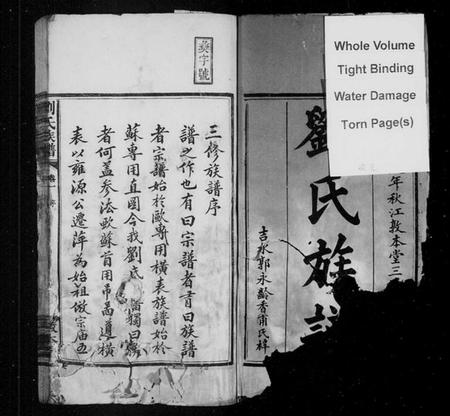 Whole Volume
Tight Binding
Water Damage
Torn Page(s)
年秋江敦本堂三
劉氏族譜
吉水郭永齡香甫氏梓
奐字號
三修族譜序
譜之作也有曰宗譜者有曰族譜
者宗譜始於歐專用橫表族譜始於
蘇專用直圖今我劉氏 譜獨曰族
者何蓋參法歐蘇首用吊啇遵橫
表以雍源公遷萍為始祖倣宗廟五
劉氏族譜
卷一 序